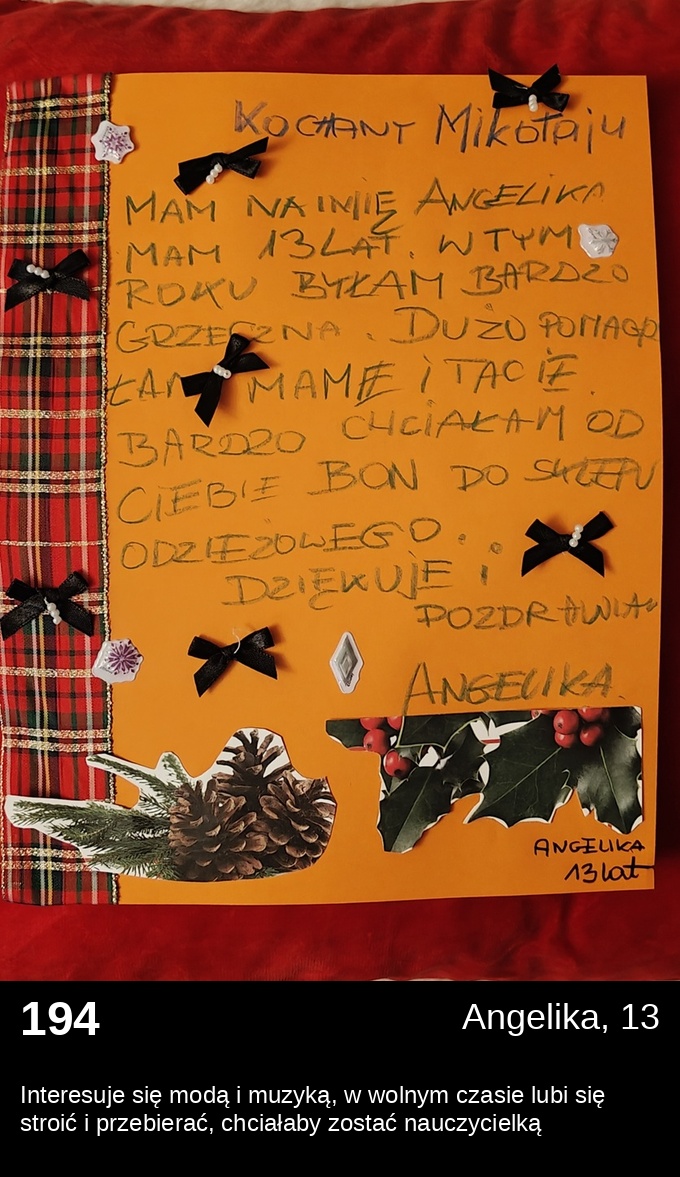 Kochany Mikołaju
MAM NA IMIĘ ANGELIKA
MAM 13 LAT. W TYM
ROKU BYŁAM BARDZO
GRZECZNA. DUŻO POMAGA
ŁAM MAMIE i TACIE.
BARDZO CHCIAŁAM OD
CIEBIE BON DO SKLEPU
ODZIEŻOWEGO..
DZIĘKUJE i
POZDRAWIAM
ANGELIKA.
ANGELIKA
13 lat
194
Angelika, 13
Interesuje się modą i muzyką, w wolnym czasie lubi się
stroić i przebierać, chciałaby zostać nauczycielką